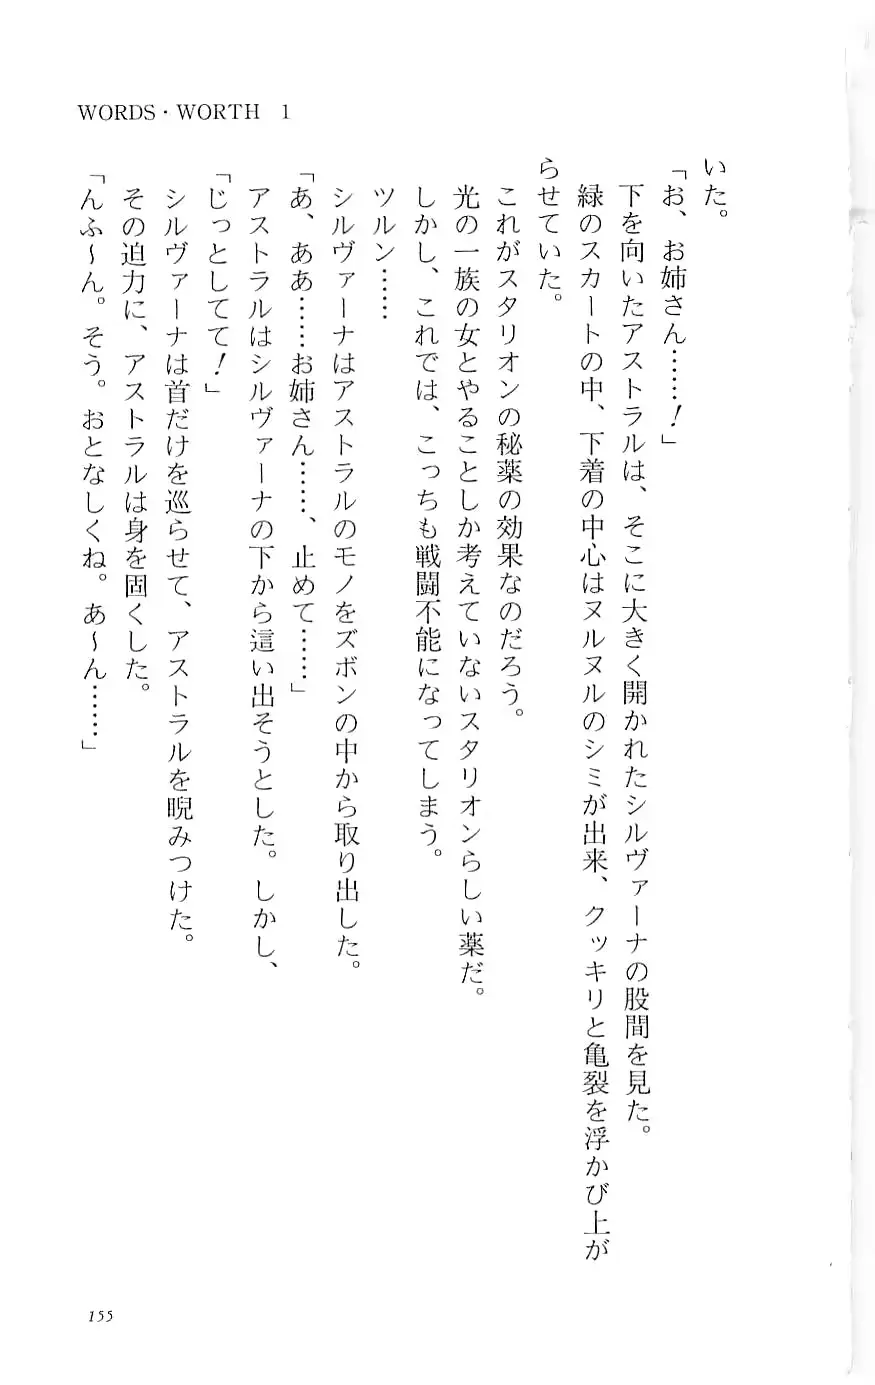 WORDS・WORTH 1
いた。
「お、お姉さん……！」
下を向いたアストラルは、そこに大きく開かれたシルヴァーナの股間を見た。
緑のスカートの中、下着の中心はヌルヌルのシミが出来、クッキリと亀裂を浮かび上が
らせていた。
これがスタリオンの秘薬の効果なのだろう。
光の一族の女とやることしか考えていないスタリオンらしい薬だ。
しかし、これでは、こっちも戦闘不能になってしまう。
ツルン……
シルヴァーナはアストラルのモノをズボンの中から取り出した。
「あ、ああ……お姉さん……、止めて……」
アストラルはシルヴァーナの下から這い出そうとした。しかし、
「じっとしてて！」
シルヴァーナは首だけを巡らせて、アストラルを睨みつけた。
その迫力に、アストラルは身を固くした。
「んふ〜ん。そう。おとなしくね。あ〜ん……」
155